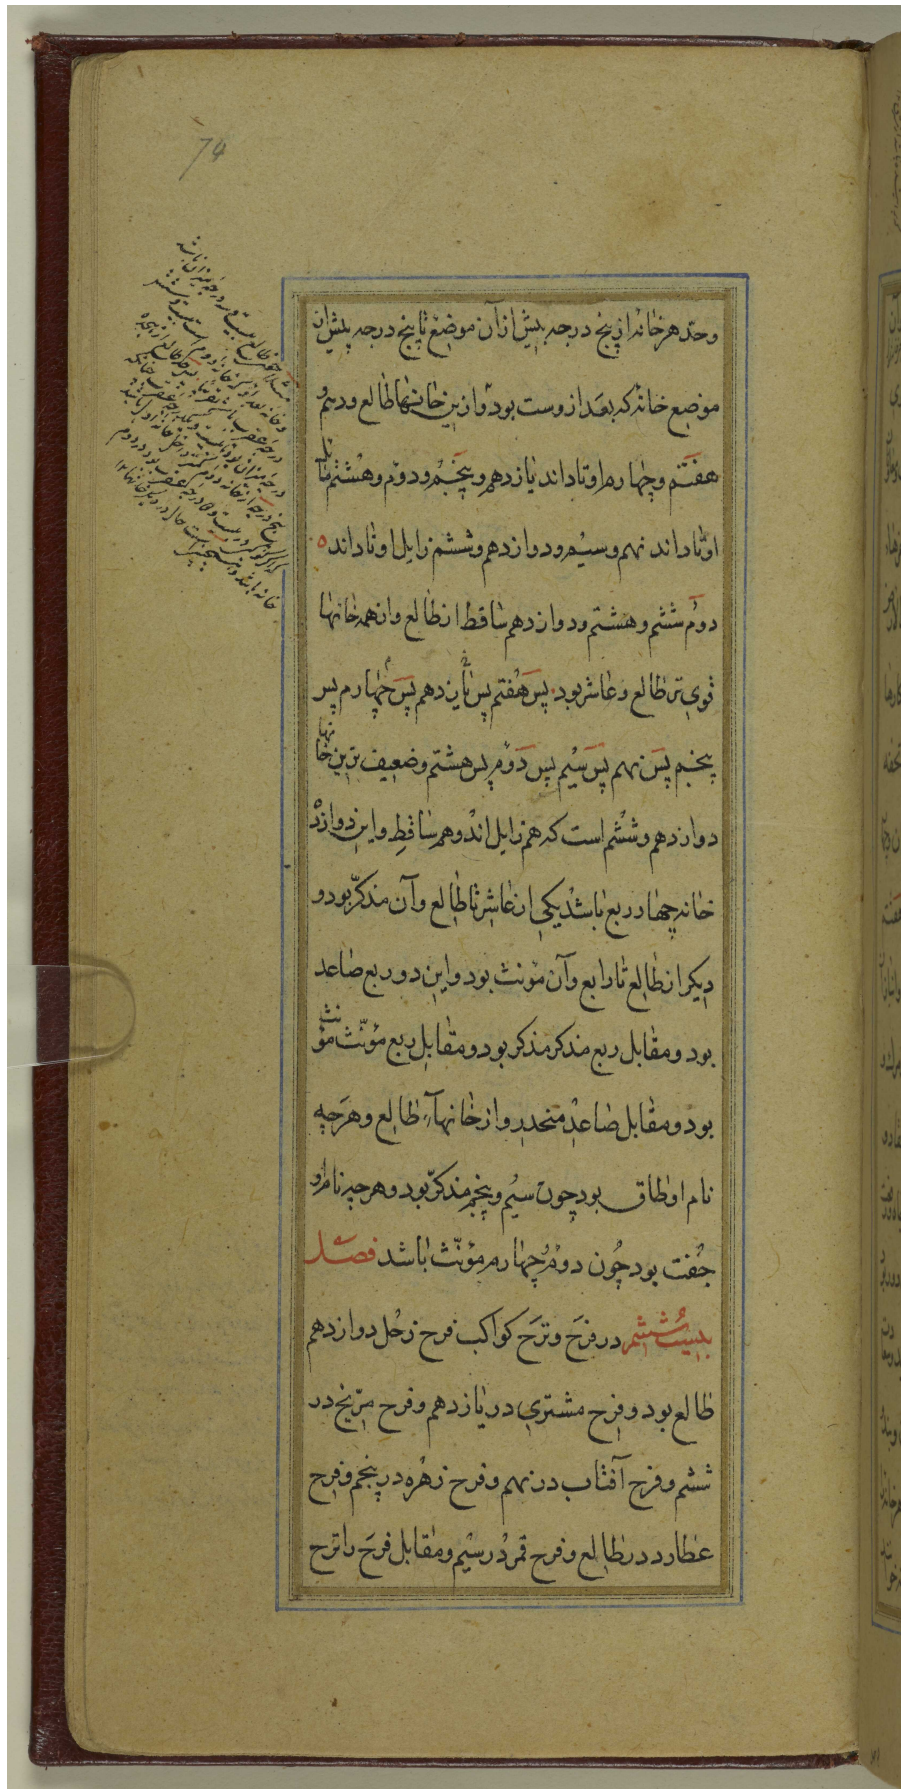 74
وحد هر خانه از پنج درجه پیش از آن موضع تا پنج درجه پیش از
موضع خانه که بعد از وست بود و ازین خانها طالع و دهم و
هفتم و چهارم اوتاد اند یازدهم و پنجم و دوم و هشتم مایل
اوتاد اند نهم و سیم و دوازدهم و ششم زایل اوتاد اند ه
دوم ششم و هشتم و دوازدهم ساقط از طالع و از همه خانها
قوی تر طالع و عاشر بود پس هفتم پس یازدهم پس چهارم پس
پنجم پس نهم پس سیم پس دوم پس هشتم و ضعیف ترین خانها
دوازدهم و ششم است که هم زایل اند و هم ساقط و این دوازده
خانه چهار ربع باشد یکی از عاشر تا طالع و آن مذکر بود و
دیگر از طالع تا رابع و آن مؤنث بود و این دو ربع صاعد
بود و مقابل ربع مذکر مذکر بود و مقابل ربع مؤنث مؤنث
بود و مقابل صاعد منحدر و از خانهاء طالع و هرچه
نام او طاق بود چون سیم و پنجم مذکر بود و هرچه نام او
جفت بود چون دوم چهارم مؤنث باشد فصل
بیست ششم در فرح و ترح کواکب فرح زحل دوازدهم
طالع بود و فرح مشتری در یازدهم و فرح مریخ در
ششم و فرح آفتاب در نهم و فرح زهره در پنجم و فرح
عطارد در طالع و فرح قمر در سیم و مقابل فرح را ترح